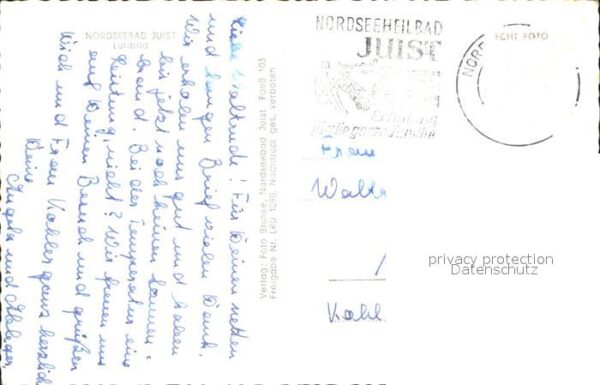 NORDSEEBAD JUIST
Luftbild
Liebe Waltrude! Für Deinen netten
und langen Brief vielen Dank.
Wir erholen uns gut und haben
bis jetzt noch keinen Sonnen-
brand. Bei der Temperatur eine
Leistung, nicht? Wir freuen uns
auf Deinen Besuch und grüßen
Dich und Frau Kahler ganz herzlich
Deine
und
Verlag: Foto Brunke, Nordseebad Juist. FueB 103
Freigabe Nr. LRD 1090. Nachdruck ges. verboten
NORDSEEHEILBAD
JUIST
Erholung
für die ganze Familie
NORD
ECHT FOTO
Frau
Waltr
/
Kahl
privacy protection
Datenschutz